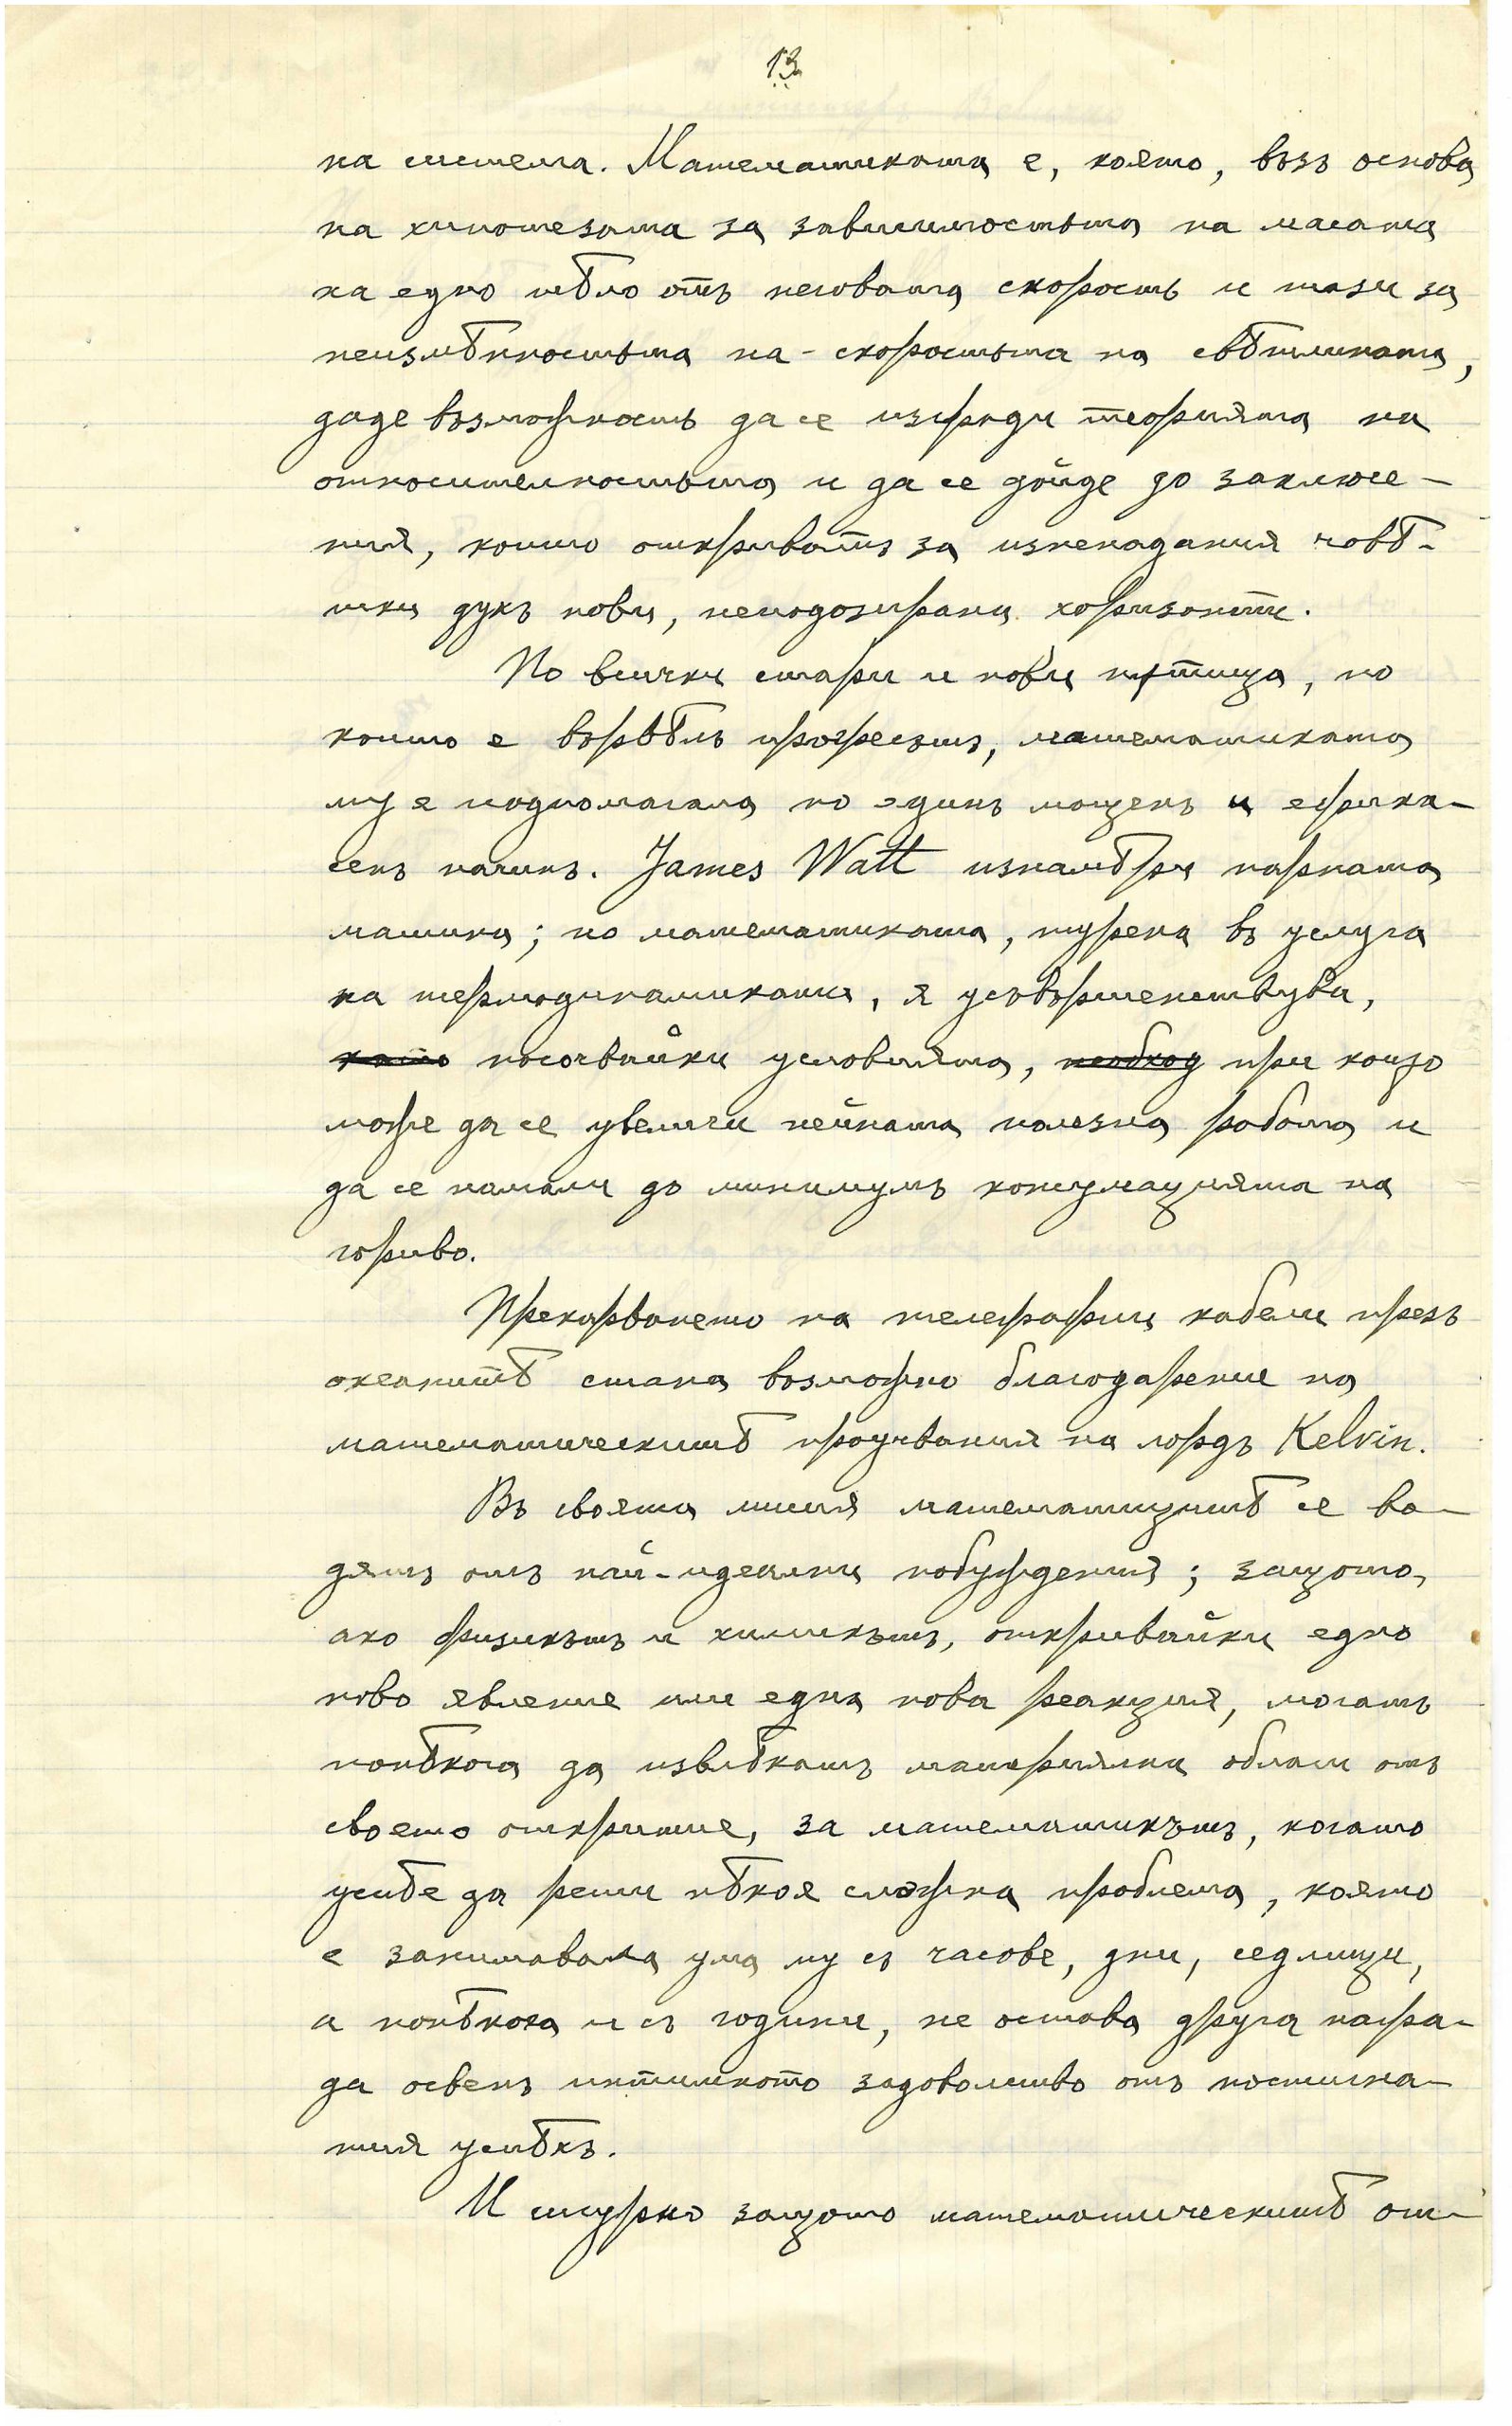 13
на система. Математиката е, която, възъ основа
на хипотезата за зависимостьта на масата
на едно тѣло отъ неговата скорость и тази за
неизмѣнностьта на - скоростьта на свѣтлината,
даде възможность да се изгради теорията на
относителностьта и да се дойде до заключе-
ния, които откриватъ за изненадания човѣ-
шки духъ нови, неподозирани хоризонти.
По всички стари и нови пѫтища, по
които е вървѣлъ прогресътъ, математиката
му е подпомагала по единъ мощенъ и ефика-
сенъ начинъ. James Watt изнамѣри парната
машина; но математиката, турена въ услуга
на термодинамиката, я усъвършенствува,
като посочвайки условията, необход при които
може да се увеличи нейната полезна работа и
да се намали до минимумъ консумацията на
гориво.
Прекарването на телеграфни кабели презъ
океанитѣ стана возможно благодарение на
математическитѣ проучвания на лордъ Kelvin.
Въ своята мисия математицитѣ се во-
дятъ отъ най-идеални побуждения; защото,
ако физикътъ и химикътъ, откривайки едно
ново явление или една нова реакция, могатъ
понѣкога да извлѣкатъ материялни облаги отъ
своето откритие, за математикътъ, когато
успѣе да реши нѣкоя сложна проблема, която
е занимавала ума му съ часове, дни, седмици,
а понѣкога и съ години, не остава друга награ-
да освенъ интимното задоволство отъ постигна-
тия успѣхъ.
И сигурно защото математическитѣ от-